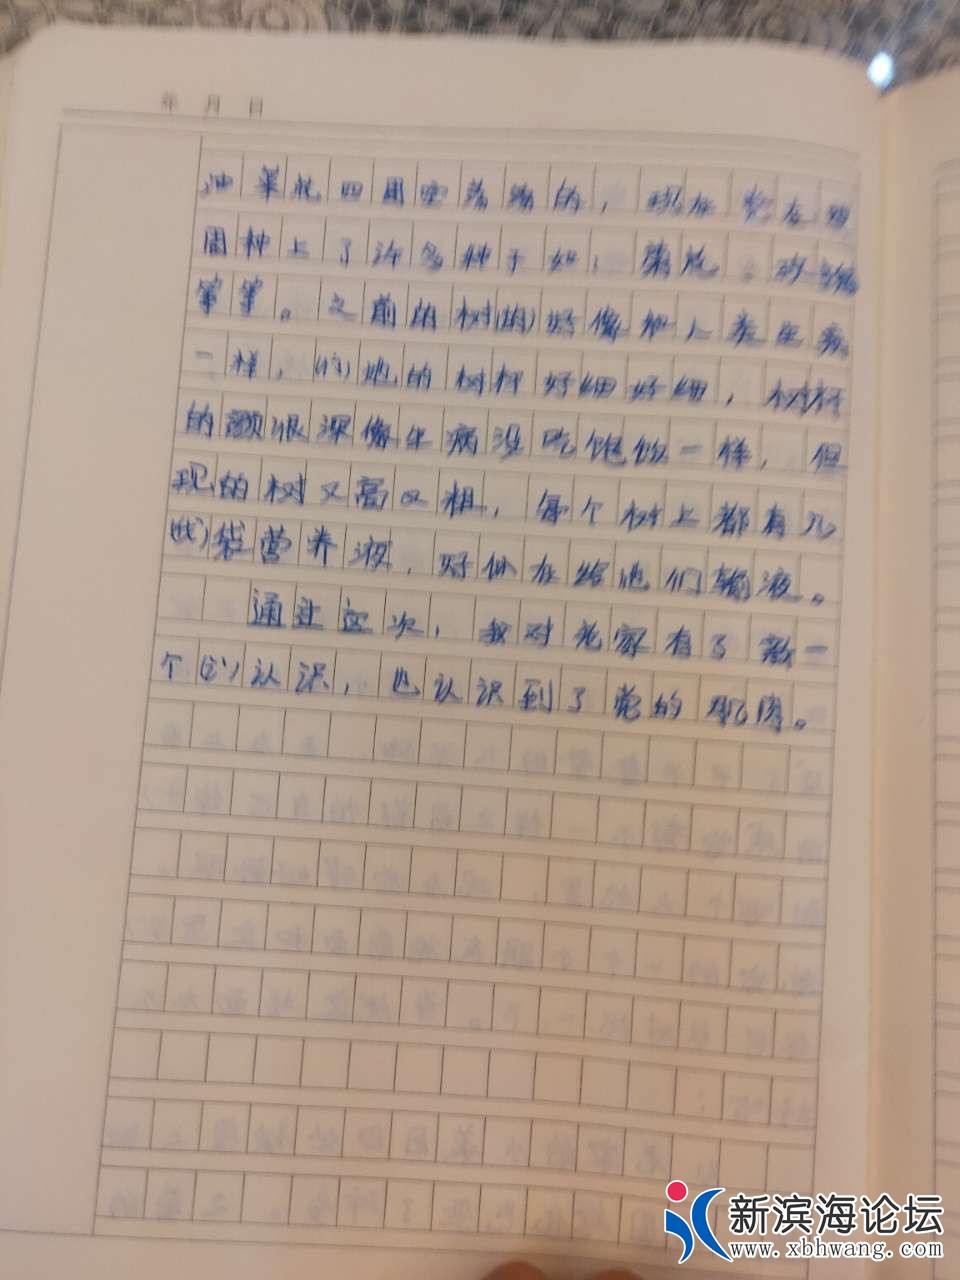 年 月 日
油菜花四周空荡荡的，现在党在四
周种上了许多种子如：菊花、
等等。之前的树(的)好像和人类生病
一样，(的)他的树杆好细好细，树杆
的颜很深像生病没吃饱饭一样，但
现的树又高又粗，每个树上都有几
(代)袋营养液，好似在给他们输液。
通过这次，我对老家有了新一
个(的)认识，也认识到了党的
新滨海论坛
www.xbhwang.com